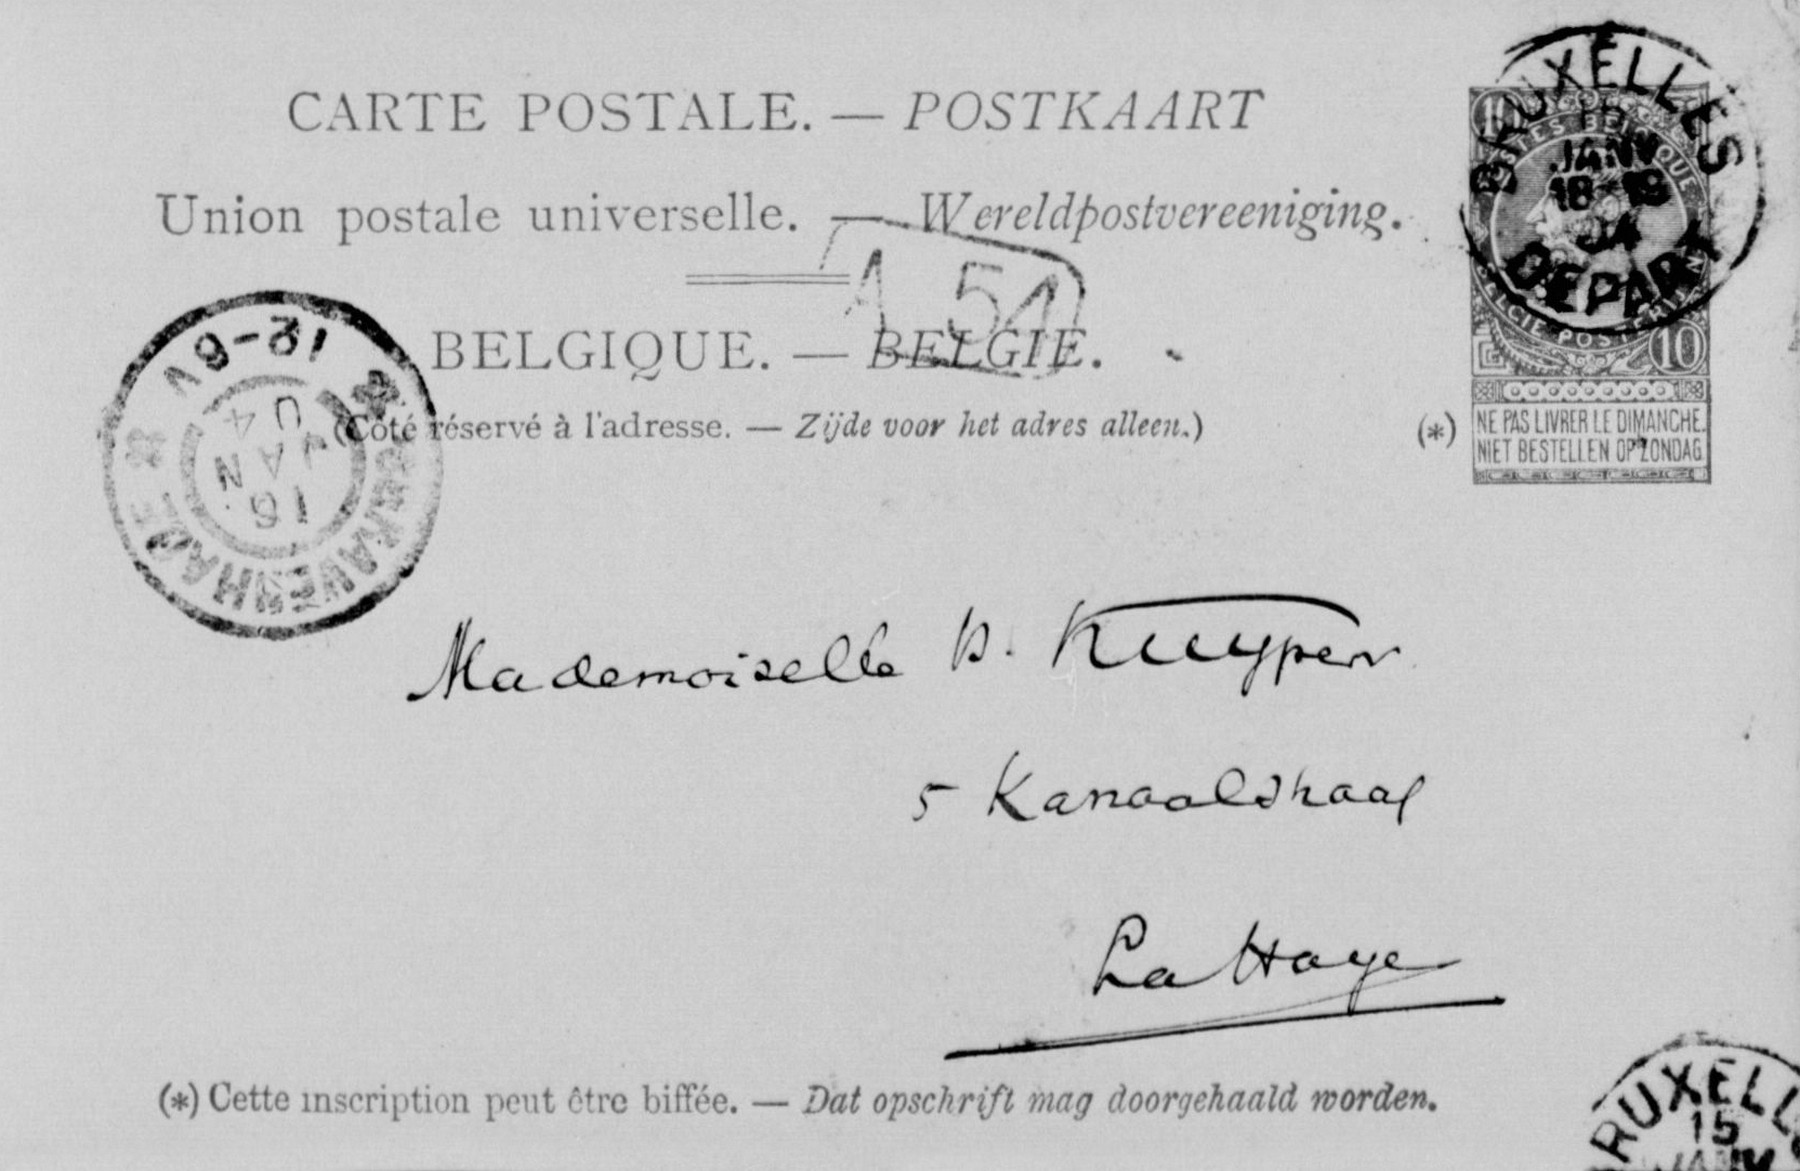 CARTE POSTALE. — POSTKAART
Union postale universelle. — Wereldpostvereeniging.
A 51
BELGIQUE. — BELGIE.
(Côté réservé à l'adresse. — Zijde voor het adres alleen.)
BRUXELLES
JANV
18-19
DEPART
10
POSTES BELGIQUE
10
(*)
NE PAS LIVRER LE DIMANCHE.
NIET BESTELLEN OP ZONDAG
'S GRAVENHAGE
16
JAN
12-6V
Mademoiselle D. Kuyper
5 Kanaalstraat
La Haye
(*) Cette inscription peut être biffée. — Dat opschrift mag doorgehaald worden.
BRUXELL
15
JANV